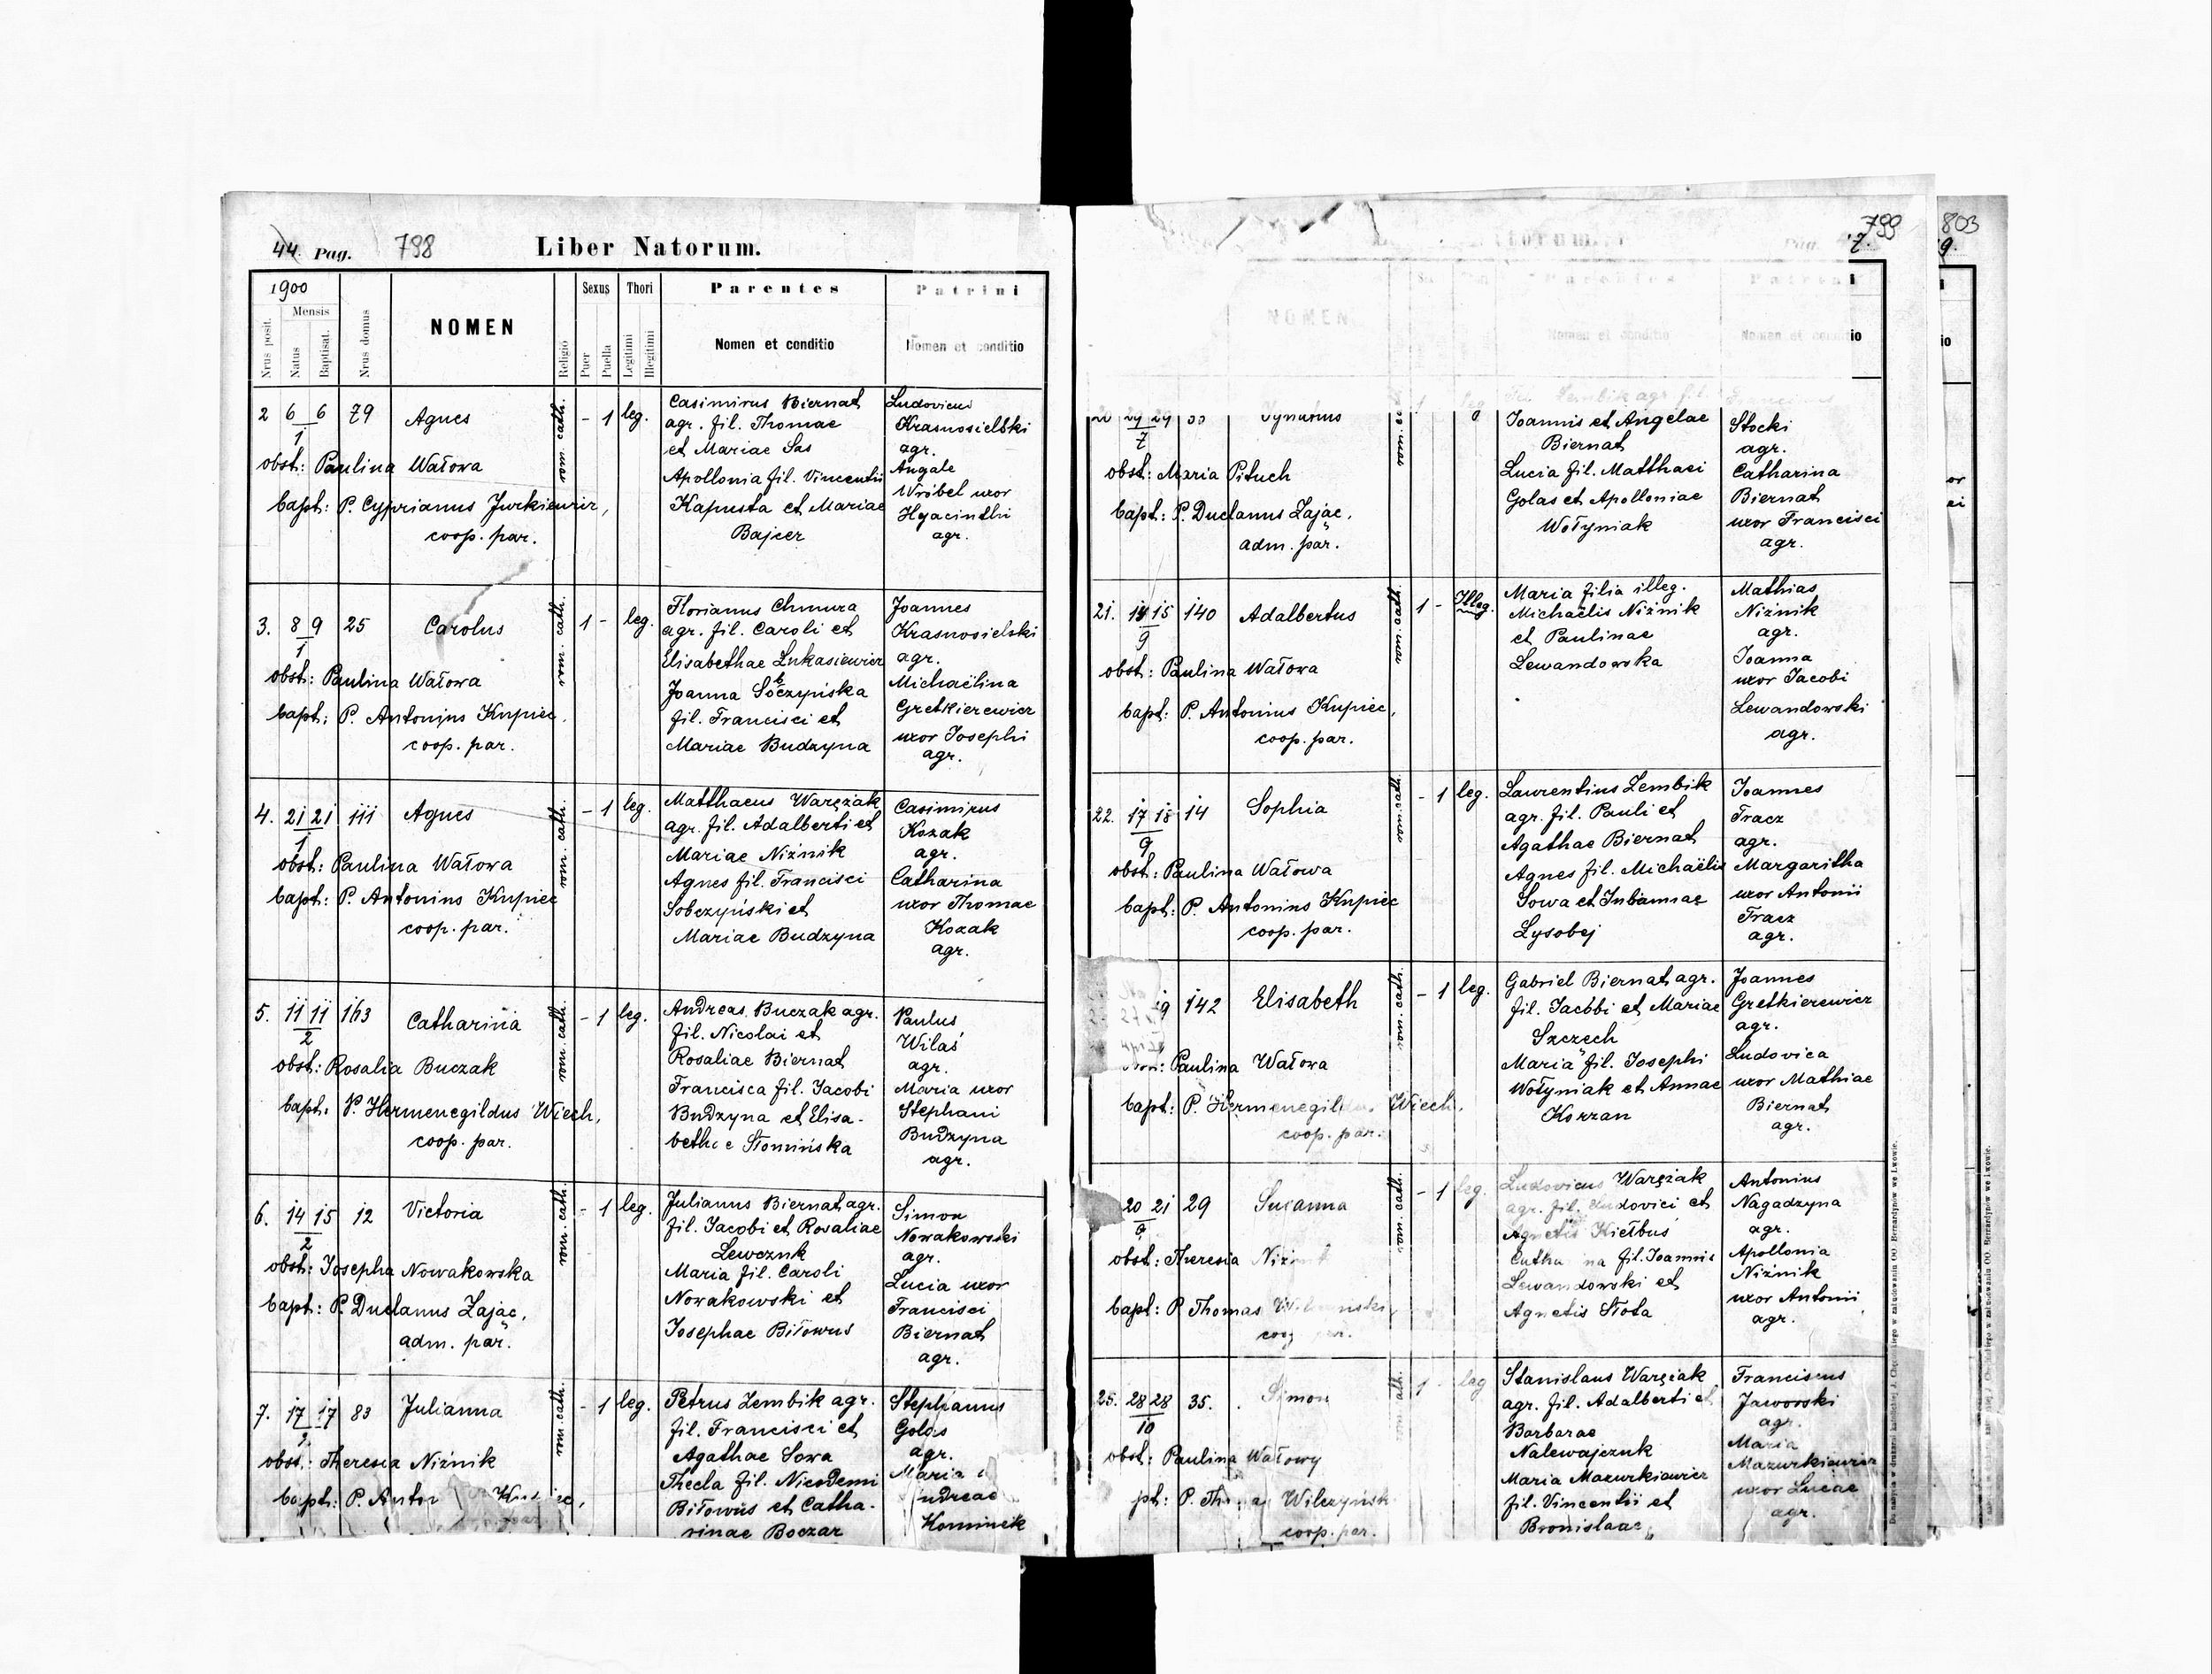 44. Pag. 798 Liber Natorum.
1900
Nrus posit.
Mensis
Natus
Baptisat.
Nrus domus
NOMEN
Religio
Sexus
Puer
Puella
Thori
Legitimi
Illegitimi
Parentes
Nomen et conditio
Patrini
Nomen et conditio
2 6 6 79 Agnes rom. cath. - 1 leg.
1
obst: Paulina Watowa
bapt: P. Cyprianus Jurkiewicz,
coop. par.
Casimirus Biernat
agr. fil. Thomae
et Mariae Sas
Apollonia fil. Vincentii
Kapusta et Mariae
Bajcer
Ludovicus
Krasnosielski
agr.
Angale
Wróbel uxor
Hyacinthi
agr.
3. 8 9 25 Carolus rom. cath. 1 - leg.
1
obst: Paulina Watowa
bapt: P. Antonius Kupiec,
coop. par.
Florianus Chmura
agr. fil. Caroli et
Elisabethae Lukasiewicz
Joanna Sobczyńska
fil. Francisci et
Mariae Budzyna
Joannes
Krasnosielski
agr.
Michaëlina
Gretkierewicz
uxor Josephi
agr.
4. 21 21 111 Agnes rom. cath. - 1 leg.
1
obst: Paulina Watowa
bapt: P. Antonius Kupiec
coop. par.
Matthaeus Waręzak
agr. fil. Adalberti et
Mariae Niźnik
Agnes fil. Francisci
Sobczyński et
Mariae Budzyna
Casimirus
Kozak
agr.
Catharina
uxor Thomae
Kozak
agr.
5. 11 11 163 Catharina rom. cath. - 1 leg.
2
obst: Rosalia Buczak
bapt: P. Hermenegildus Wiech,
coop. par.
Andreas Buczak agr.
fil. Nicolai et
Rosaliae Biernat
Francisca fil. Jacobi
Budzyna et Elisa-
bethae Słomińska
Paulus
Wilaś
agr.
Maria uxor
Stephani
Budzyna
agr.
6. 14 15 12 Victoria rom. cath. - 1 leg.
2
obst: Josepha Nowakowska
bapt: P. Duclanus Zając,
adm. par.
Julianus Biernat agr.
fil. Jacobi et Rosaliae
Lewczuk
Maria fil. Caroli
Nowakowski et
Josephae Biłowus
Simon
Nowakowski
agr.
Lucia uxor
Francisci
Biernat
agr.
7. 17 17 83 Julianna rom. cath. - 1 leg.
2
obst: Theresia Niźnik
bapt: P. Anton
Petrus Zembik agr.
fil. Francisci et
Agathae Sowa
Thecla fil. Nicodemi
Biłowus et Catha-
rinae Boczar
Stephanus
Golas
agr.
Maria
Kominek
799
NOMEN
Parentes
Nomen et conditio
Patrini
Nomen et conditio
29 29
7
obst: Maria Pituch
bapt: P. Duclanus Zając,
adm. par.
Joannis et Angelae
Biernat
Lucia fil. Matthaei
Golas et Apolloniae
Wołyniak
Stocki
agr.
Catharina
Biernat
uxor Francisci
agr.
21. 14 15 140 Adalbertus rom. cath. 1 - Illeg.
9
obst: Paulina Watowa
bapt: P. Antonius Kupiec,
coop. par.
Maria filia illeg.
Michaëlis Niźnik
et Paulinae
Lewandowska
Mathias
Niźnik
agr.
Joanna
uxor Jacobi
Lewandowski
agr.
22. 17 18 14 Sophia rom. cath. - 1 leg.
9
obst: Paulina Watowa
bapt: P. Antonius Kupiec
coop. par.
Laurentius Zembik
agr. fil. Pauli et
Agathae Biernat
Agnes fil. Michaëlis
Sowa et
Lysobej
Joannes
Tracz
agr.
Margaritha
uxor Antonii
Tracz
agr.
142 Elisabeth rom. cath. - 1 leg.
Paulina Watowa
bapt: P. Hermenegildus Wiech,
coop. par.
Gabriel Biernat agr.
fil. Jacobi et Mariae
Szczech
Maria fil. Josephi
Wołyniak et Annae
Korzan
Joannes
Gretkierewicz
agr.
Ludovica
uxor Mathiae
Biernat
agr.
20 21 29 Susanna rom. cath. - 1 leg.
9
obst: Theresia
bapt: P. Thomas
Ludovicus Waręzak
agr. fil. Ludovici et
Agnetis Kiełbuś
fil. Joannis
Lewandowski et
Agnetis Słota
Antonius
Nagadzyna
agr.
Apollonia
Niźnik
uxor Antonii
agr.
25. 28 28 35. Simon 1 leg
10
obst: Paulina Watowy
P. Wilczyńsk
coop. par.
Stanislaus Waręzak
agr. fil. Adalberti et
Barbarae
Nalewajczuk
Maria Mazurkiewicz
fil. Vincentii et
Bronislaae
Franciscus
Jaworski
agr.
Maria
Mazurkiewicz
uxor Lucae
agr.
803
9.